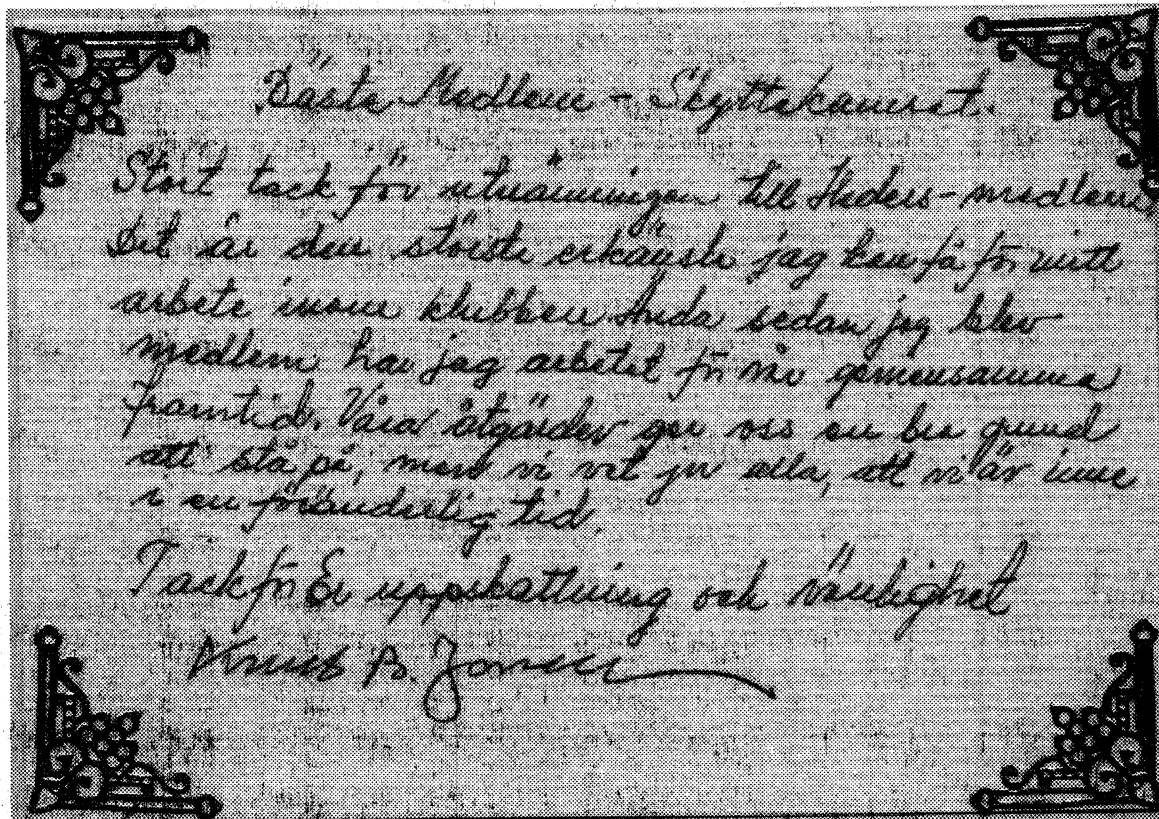 Bästa Medlem - Skyttekamrat.
Stort tack för utnämningen till Heders-medlem.
Det är den största erkänsla jag kan få för mitt
arbete inom klubben. Ända sedan jag blev
medlem har jag arbetat för vår gemensamma
framtid. Våra åtgärder ger oss en bra grund
att stå på, men vi vet ju alla, att vi är inne
i en föränderlig tid.
Tack för Er uppskattning och vänlighet
Knut B.